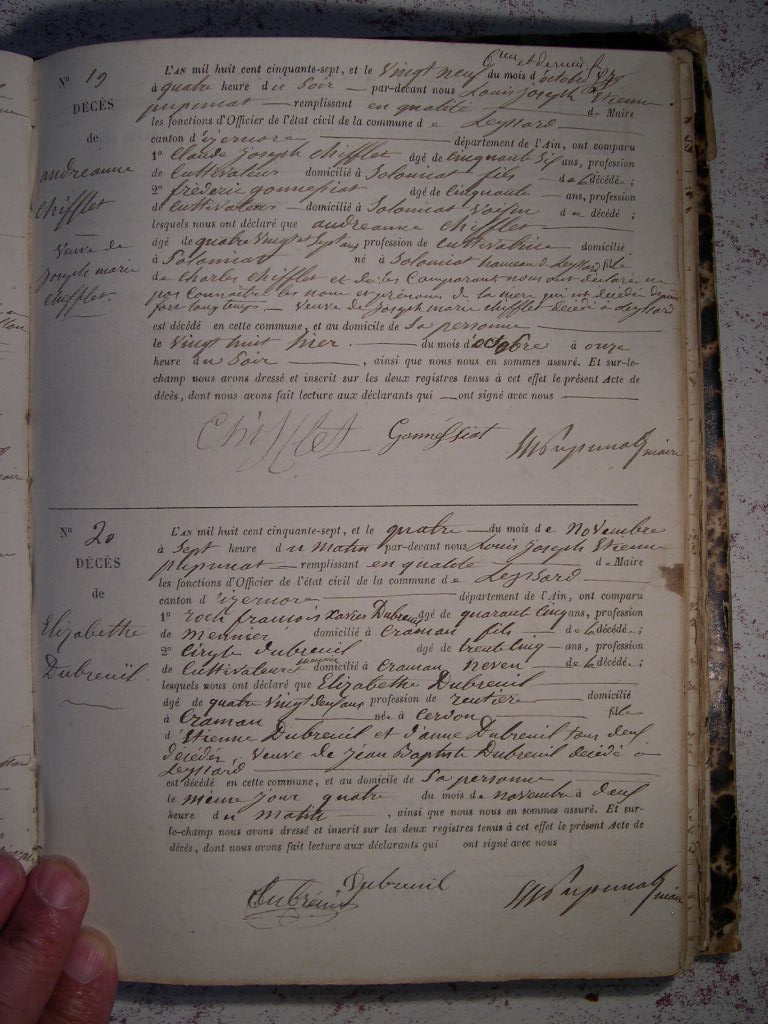 6me et dernier
N° 19
DÉCÈS
de
andréanne
Chifflet
Veuve de
Joseph marie
chifflet.
L'AN mil huit cent cinquante-sept, et le Vingt neuf du mois d'octobre
à quatre heure du Soir par-devant nous Louis Joseph Etienne
pupunat remplissant en qualité de Maire
les fonctions d'Officier de l'état civil de la commune de Leyssard
canton d'izernore département de l'Ain, ont comparu
1° Claude Joseph Chifflet âgé de cinquante six ans, profession
de Cultivateur domicilié à Solomiat fils de la décédée ;
2° fréderic gonnessiat âgé de cinquante ans, profession
de Cultivateur domicilié à Solomiat Voisin de décédé ;
lesquels nous ont déclaré que andréanne Chifflet
âgé de quatre vingt et sept ans profession de Cultivatrice domicilié
à Solomiat né à Solomiat hameau de Leyssard fille
de Charles Chifflet et de les Comparants nous ont déclaré ne
pas Connaitre les nom et prénoms de la mère qui est décédée depuis
fort longtemps Veuve de Joseph marie chifflet décédé à Leyssard
est décédé en cette commune, et au domicile de Sa personne
le Vingt huit hier du mois d'octobre à onze
heure du Soir , ainsi que nous nous en sommes assuré. Et sur-le-
champ nous avons dressé et inscrit sur les deux registres tenus à cet effet le présent Acte de
décès, dont nous avons fait lecture aux déclarants qui ont signé avec nous
Chifflet Gonnéssiat Pupunat maire
N° 20
DÉCÈS
de
Elizabethe
Dubreuil
L'AN mil huit cent cinquante-sept, et le quatre du mois de Novembre
à Sept heure du Matin par-devant nous Louis Joseph Etienne
pupunat remplissant en qualité de Maire
les fonctions d'Officier de l'état civil de la commune de Leyssard
canton d'izernore département de l'Ain, ont comparu
1° roch françois Xavier Dubreuil âgé de quarant cinq ans, profession
de meunier domicilié à Craman fils de la décédée ;
2° Ciryle Dubreuil âgé de trente cinq ans, profession
de Cultivateur domicilié à Craman neven de la décédée.
lesquels nous ont déclaré que Elizabethe Dubreuil
âgé de quatre vingt deux ans profession de rentière domicilié
à Craman née à Cerdon fille
d'Etienne Dubreuil et d'anne Dubreuil tous deux
décédés, Veuve de Jean Baptiste Dubreuil décédé à
Leyssard
est décédé en cette commune, et au domicile de Sa personne
le même jour quatre du mois de novembre à deux
heure du matin , ainsi que nous nous en sommes assuré. Et sur-
le-champ nous avons dressé et inscrit sur les deux registres tenus à cet effet le présent Acte de
décès, dont nous avons fait lecture aux déclarants qui ont signé avec nous
Dubréuil Dubreuil Pupunat maire